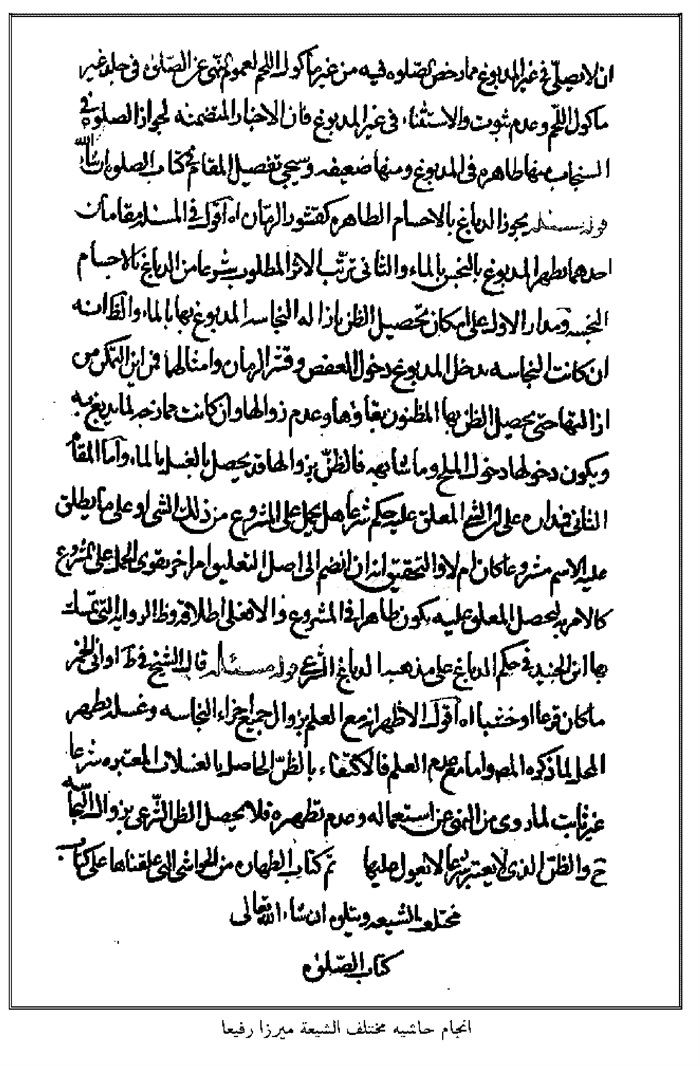 ان لا يصلّى فى غير المدبوغ مما رخص الصلوه فيه من غير ماكول اللحم لعموم النهى عن الصلوة فى جلد غير
ماكول اللحم وعدم ثبوت الاستثناء فى غير المدبوغ فان الاخبار المتضمنه لجواز الصلوة فى
السنجاب منها ظاهره فى المدبوغ ومنها ضعيفه وسيجئ تفصيل المقام فى كتاب الصلوة انشاء الله
قوله مسئله يجوز الدباغ بالاجسام الطاهره كقشور الرمان اه اقول فى المسئله مقامان
احدهما تطهر المدبوغ بالنجس بالماء والثانى ترتّب الاثر المطلوب شرعا من الدباغ بالاجسام
النجسه ومدار الاول على امكان تحصيل الظن بازاله النجاسه المدبوغ بها بالماء والظ انه
ان كانت النجاسه تدخل المدبوغ دخول العفص وقشر الرمان وامثالهما فمن اين التمكن من
ازالتها حتى يحصل الظن بها المظنون بقاؤها وعدم زوالها وان كانت مما زجه لما يدبغ به
ويكون دخولها دخول الملح وما شابهه فالظنّ بزوالها قد يحصل بالغسل بالماء واما المقام
الثانى فمداره على ان الشئ المعلق عليه حكم شرعا هل يحمل على المشروع من ذلك الشئ او على ما يطلق
عليه الاسم مشروعا كان ام لا والتحقيق انه ان انضم الى اصل التعليق امر اخر يقوى الحمل على المشروع
كالامر بتحصيل المعلق عليه يكون ظاهرا فى المشروع والا فعلى اطلاقه وظ الروايه التى تمسك
بها ابن الجنيد فى حكم الدباغ على مذهبه الدباغ الشرعى قوله مسئله قال الشيخ فى ط اوانى الخمر
ما كان قرعا او خشبا اه اقول الاظهر انه مع العلم بزوال جميع اجزاء النجاسه وغسله يطهر
المحل لما ذكره المص واما مع عدم العلم فالاكتفاء بالظنّ الحاصل بالغسلات المعتبره شرعا
غير ثابت لما روى من النهى عن استعماله وعدم تطهره فلا يحصل الظن الشرعى بزوال النجاسه
ح والظن الذى لا يعتبر شرعا لا تعويل عليها تم كتاب الطهاره من الحواشى التى علقناها على كتاب
مختلف الشيعه ويتلوه ان شاء الله تعالى
كتاب الصلوة
انجام حاشيه مختلف الشيعة ميرزا رفيعا